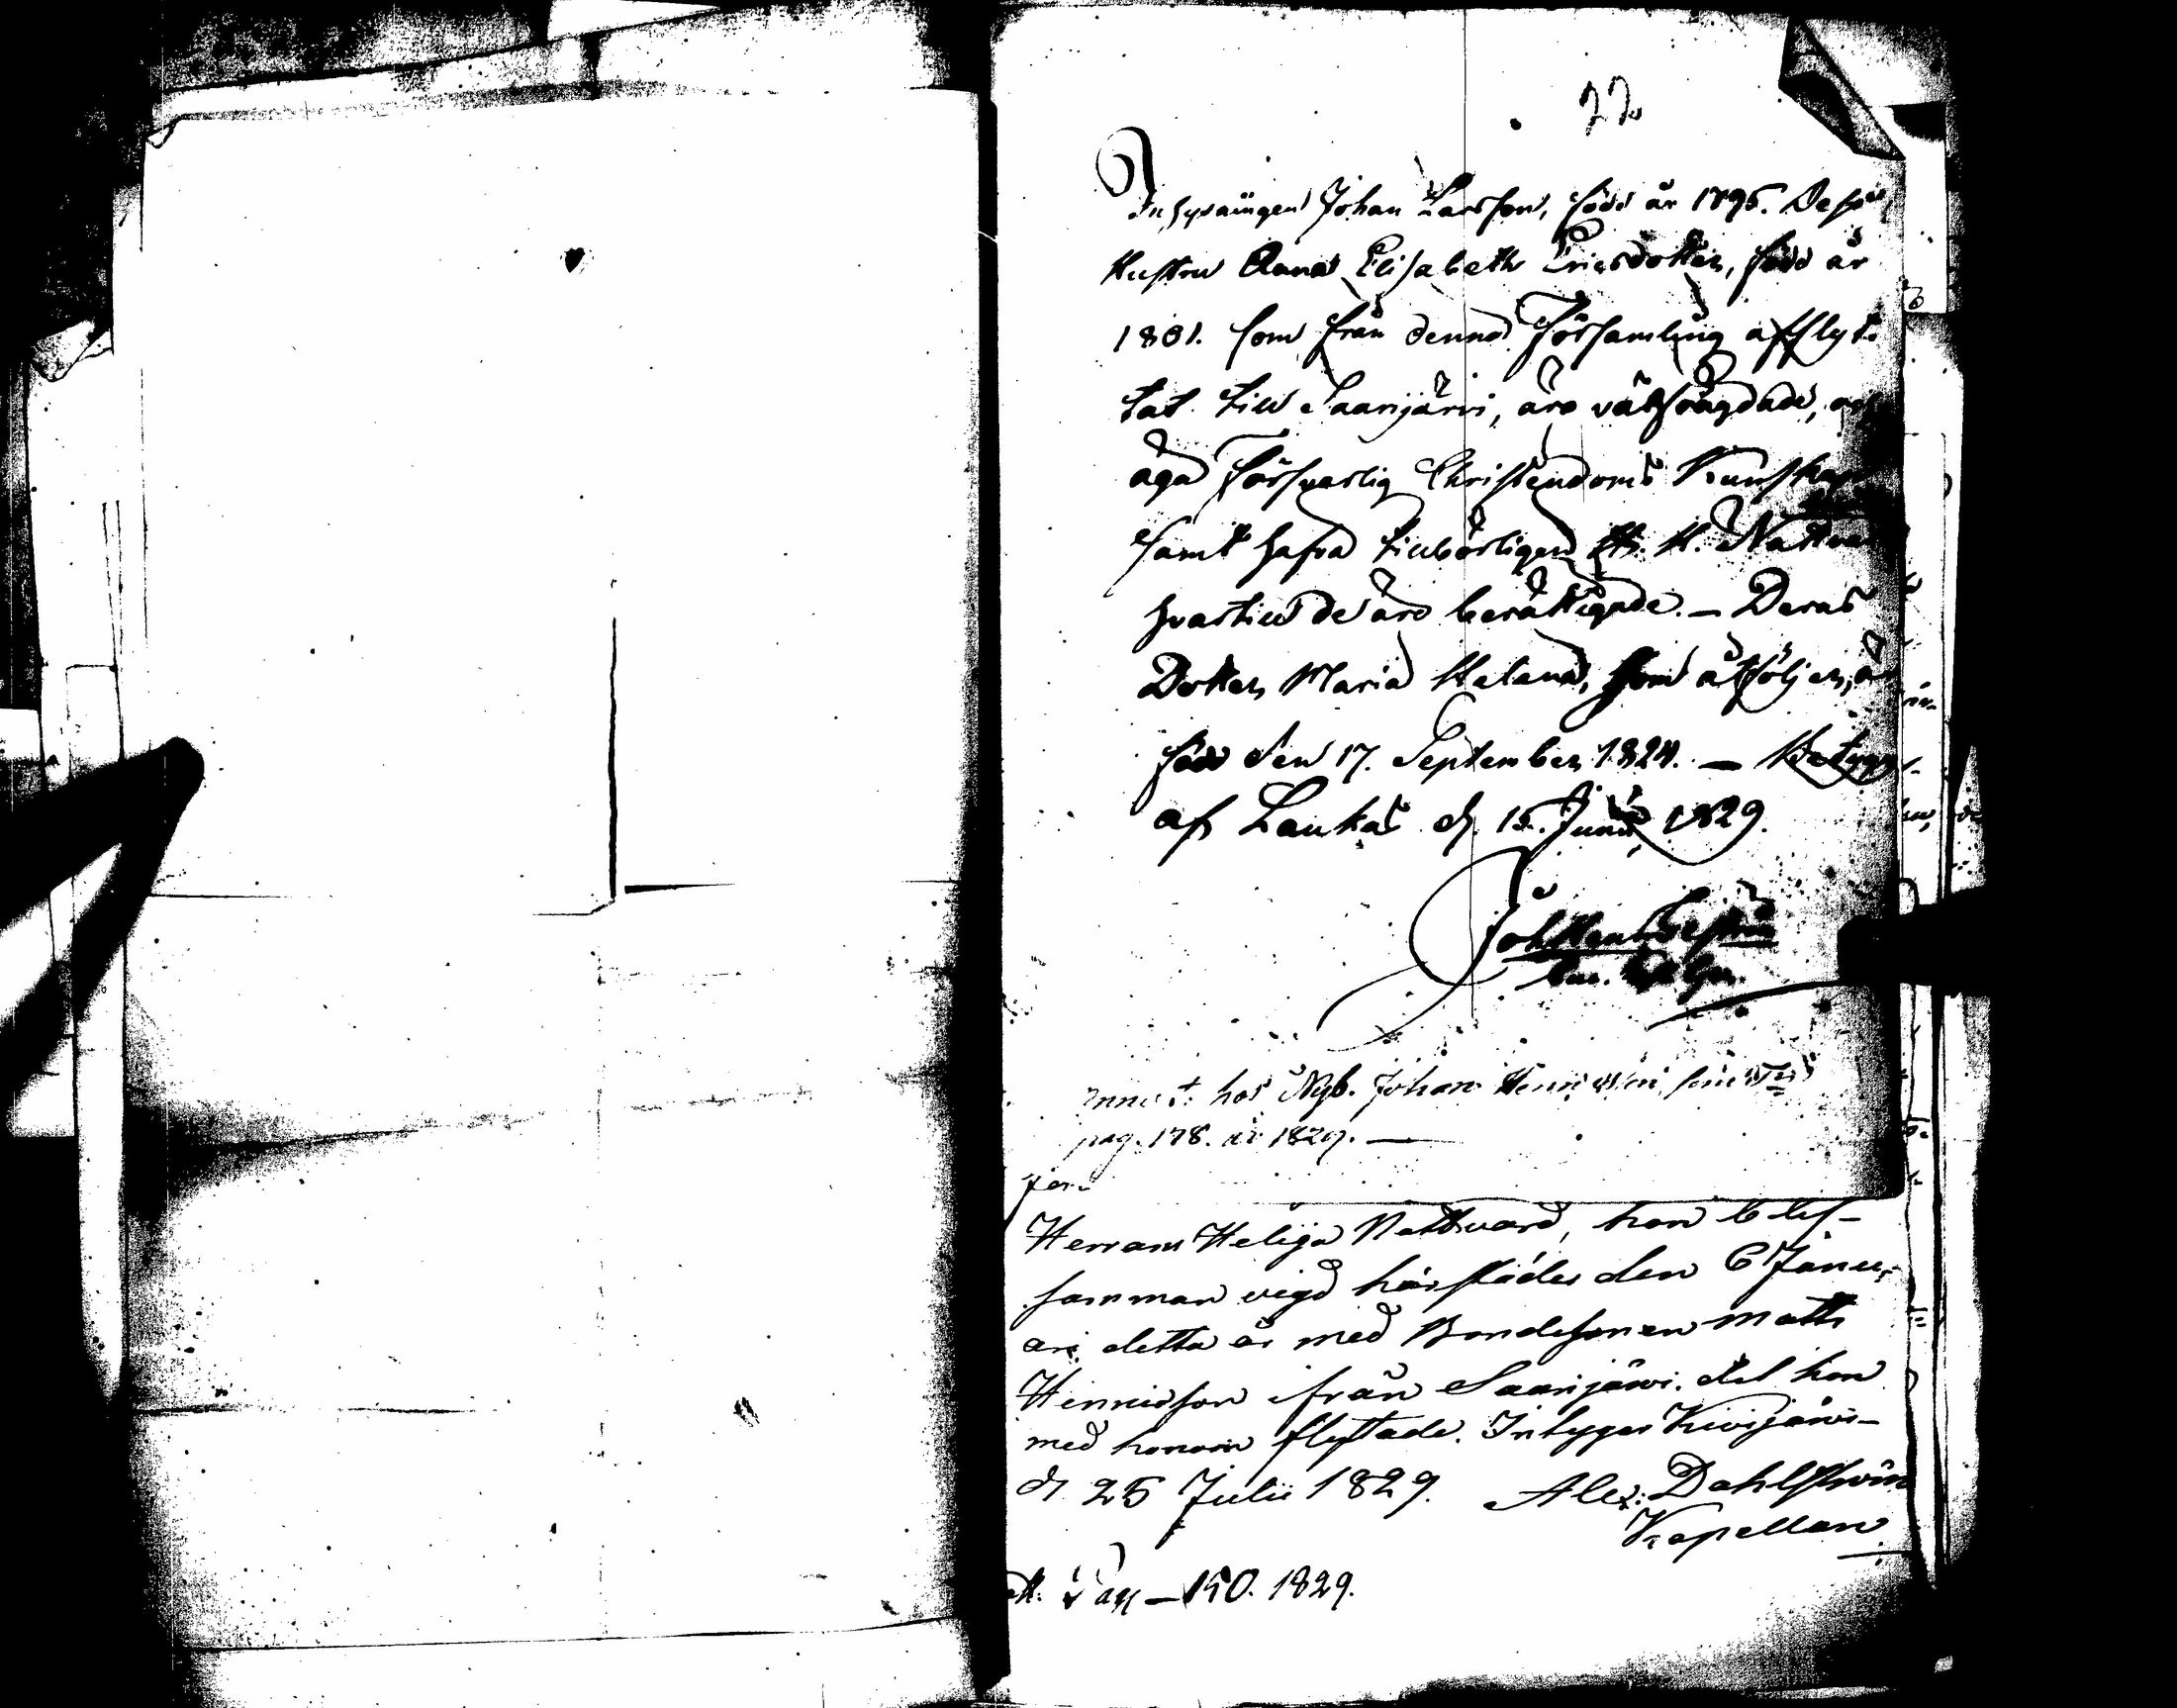 22
Inhysningen Johan Larsson, född år 1795. Dess
Hustru Anna Elisabeth Ericsdotter, född år
1801. som från denna Församling afflyt-
tat till Saarijärvi, äro välfrägdade,
äga försvarlig Christendoms Kunskap
samt hafva tillbörligen H. H. Nattvard
hvartill de äro berättigade. — Deras
Dotter Maria Helena, som åtföljer, är
född den 17. September 1824. — Betygar
af Laukas d. 15. Junii, 1829.
hos Nyb. Johan
pag. 178. år 1829. —
Herrans Heliga Nattvard, hon blef
samman vigd härstädes den 6 Janu-
ari detta år med Bondesonen Matts
Henricsson ifrån Saarijärvi. dit hon
med honom flyttade. Intygar Kivijärvi
d. 25 Julii 1829. Alex: Dahlström
Kapellan
Pag — 150. 1829.